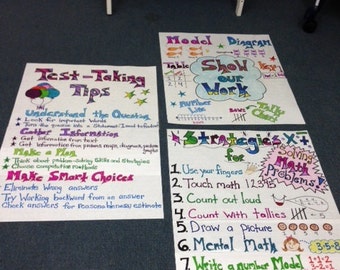 Test-Taking
Tips
Understand the Question
Look for important words
Gather Information
Get information from text
Get information from pictures, maps, diagrams,
Make a Plan
Think about problem-solving skills and strategies
Choose computation methods
Make Smart Choices
Eliminate Wrong answers
Try Working backward from an answer
Check answers for reasonableness; estimate
Model Diagram
Table
Show
our
Work
Number
Line
Tally
Strategies
for
Solving
Math
Problems!
1. Use your fingers
2. Touch math 1234
3. Count out loud
4. Count with tallies
5. Draw a Picture
6. Mental Math 3-5-8
7. Write a number Model